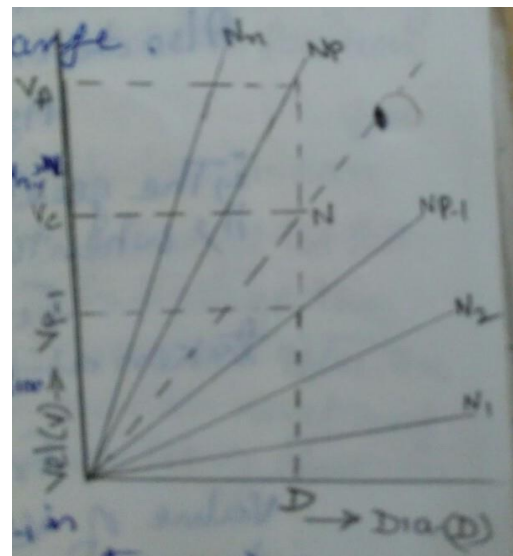 ange.
Nn
NP
VP
VC
N
NP-1
VP-1
N2
N1
Vel(V) →
D
→ Dia(D)
in